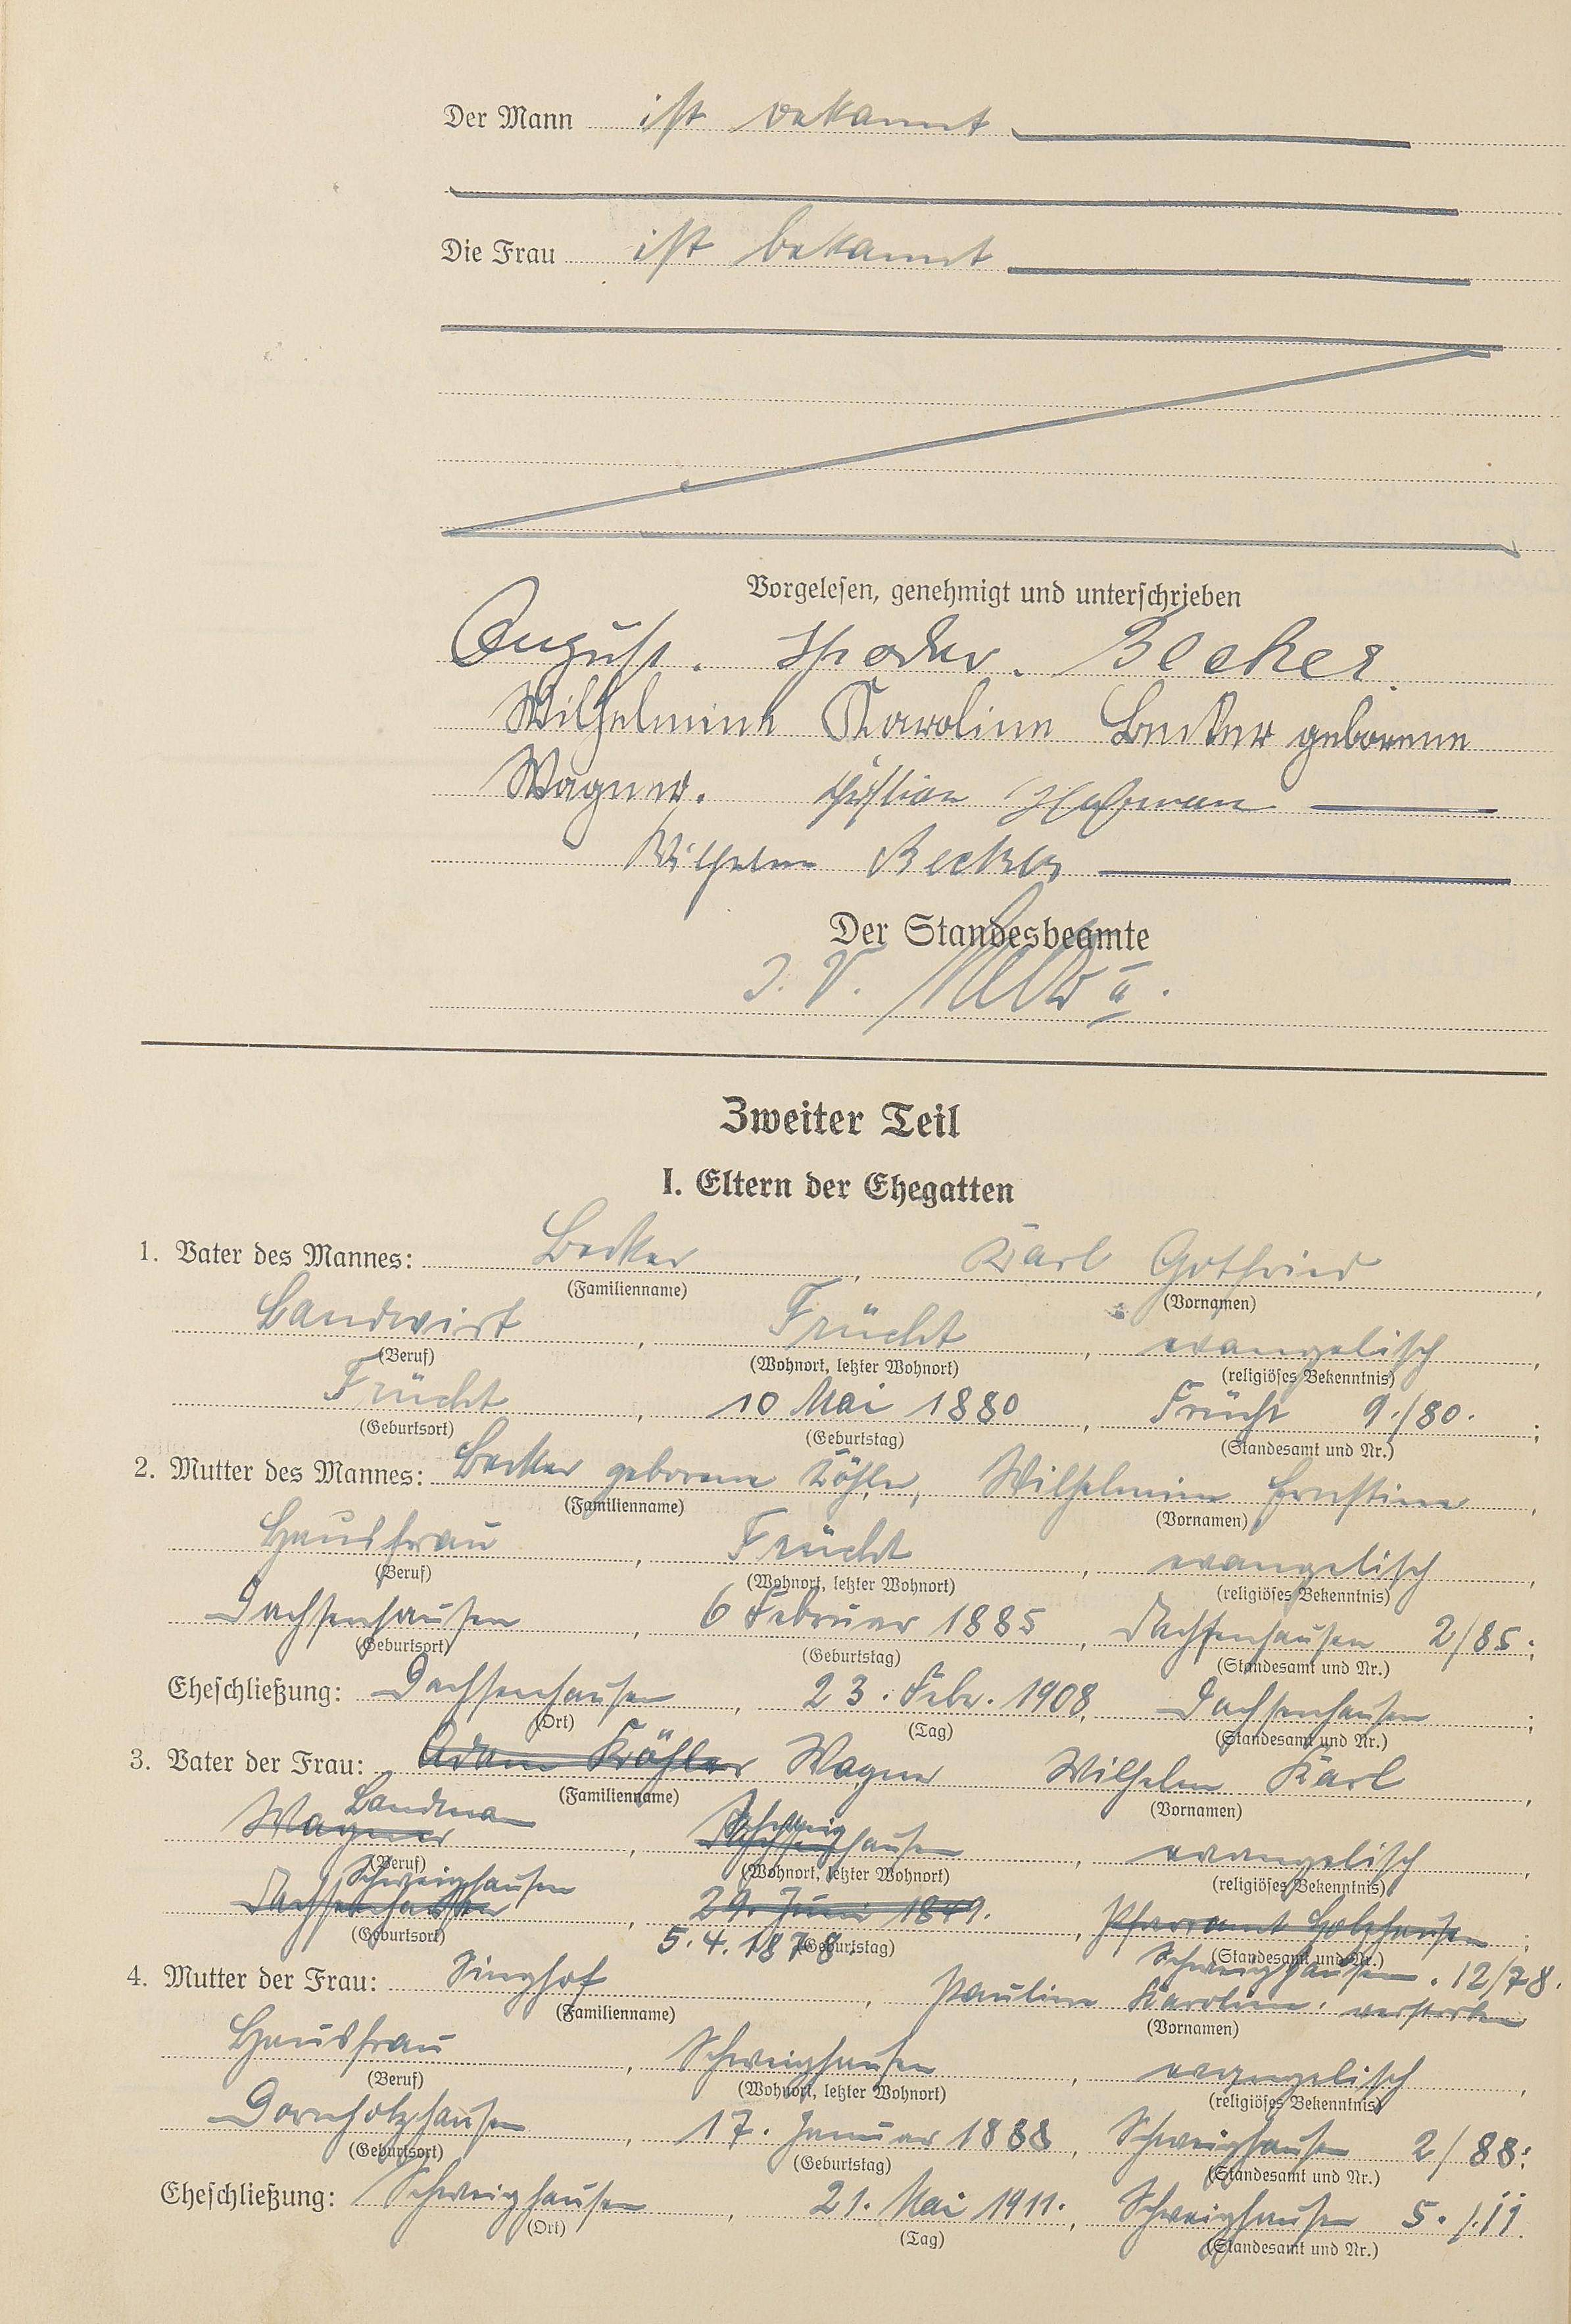 Der Mann ist bekannt
Die Frau ist bekannt
Vorgelesen, genehmigt und unterschrieben
August. Theodor. Becker.
Wilhelmine Karoline Becker geborene
Wagner. Christian Hofmann
Wilhelm Becker
Der Standesbeamte
J. V.
Zweiter Teil
I. Eltern der Ehegatten
1. Vater des Mannes: Becker, Karl Gotfried,
(Familienname) (Vornamen)
Landwirt, Frücht, evangelisch,
(Beruf) (Wohnort, letzter Wohnort) (religiöses Bekenntnis)
Frücht, 10 Mai 1880, Frücht 9./80.;
(Geburtsort) (Geburtstag) (Standesamt und Nr.)
2. Mutter des Mannes: Becker geborene Köhler, Wilhelmine Ernstine,
(Familienname) (Vornamen)
Hausfrau, Frücht, evangelisch,
(Beruf) (Wohnort, letzter Wohnort) (religiöses Bekenntnis)
Dachsenhausen, 6 Februar 1885, Dachsenhausen 2/85;
(Geburtsort) (Geburtstag) (Standesamt und Nr.)
Eheschließung: Dachsenhausen, 23. Febr. 1908, Dachsenhausen;
(Ort) (Tag) (Standesamt und Nr.)
3. Vater der Frau: Adam Köhler Wagner Wilhelm Karl,
(Familienname) (Vornamen)
Landman
Wagner, hausen, evangelisch,
(Beruf) (Wohnort, letzter Wohnort) (religiöses Bekenntnis)
Schweighausen
Dachsenhausen, 29. Juni 1849., Pfarramt Holzhausen;
(Geburtsort) (Geburtstag) (Standesamt und Nr.)
5.4.1878. Schweighausen. 12/78.
4. Mutter der Frau: Singhof, Pauline Karoline. verstorben
(Familienname) (Vornamen)
Hausfrau, Schweighausen, evangelisch,
(Beruf) (Wohnort, letzter Wohnort) (religiöses Bekenntnis)
Dornholzhausen, 17. Januar 1888, Schweighausen 2/88;
(Geburtsort) (Geburtstag) (Standesamt und Nr.)
Eheschließung: Schweighausen, 21. Mai 1911., Schweighausen 5./11.
(Ort) (Tag) (Standesamt und Nr.)